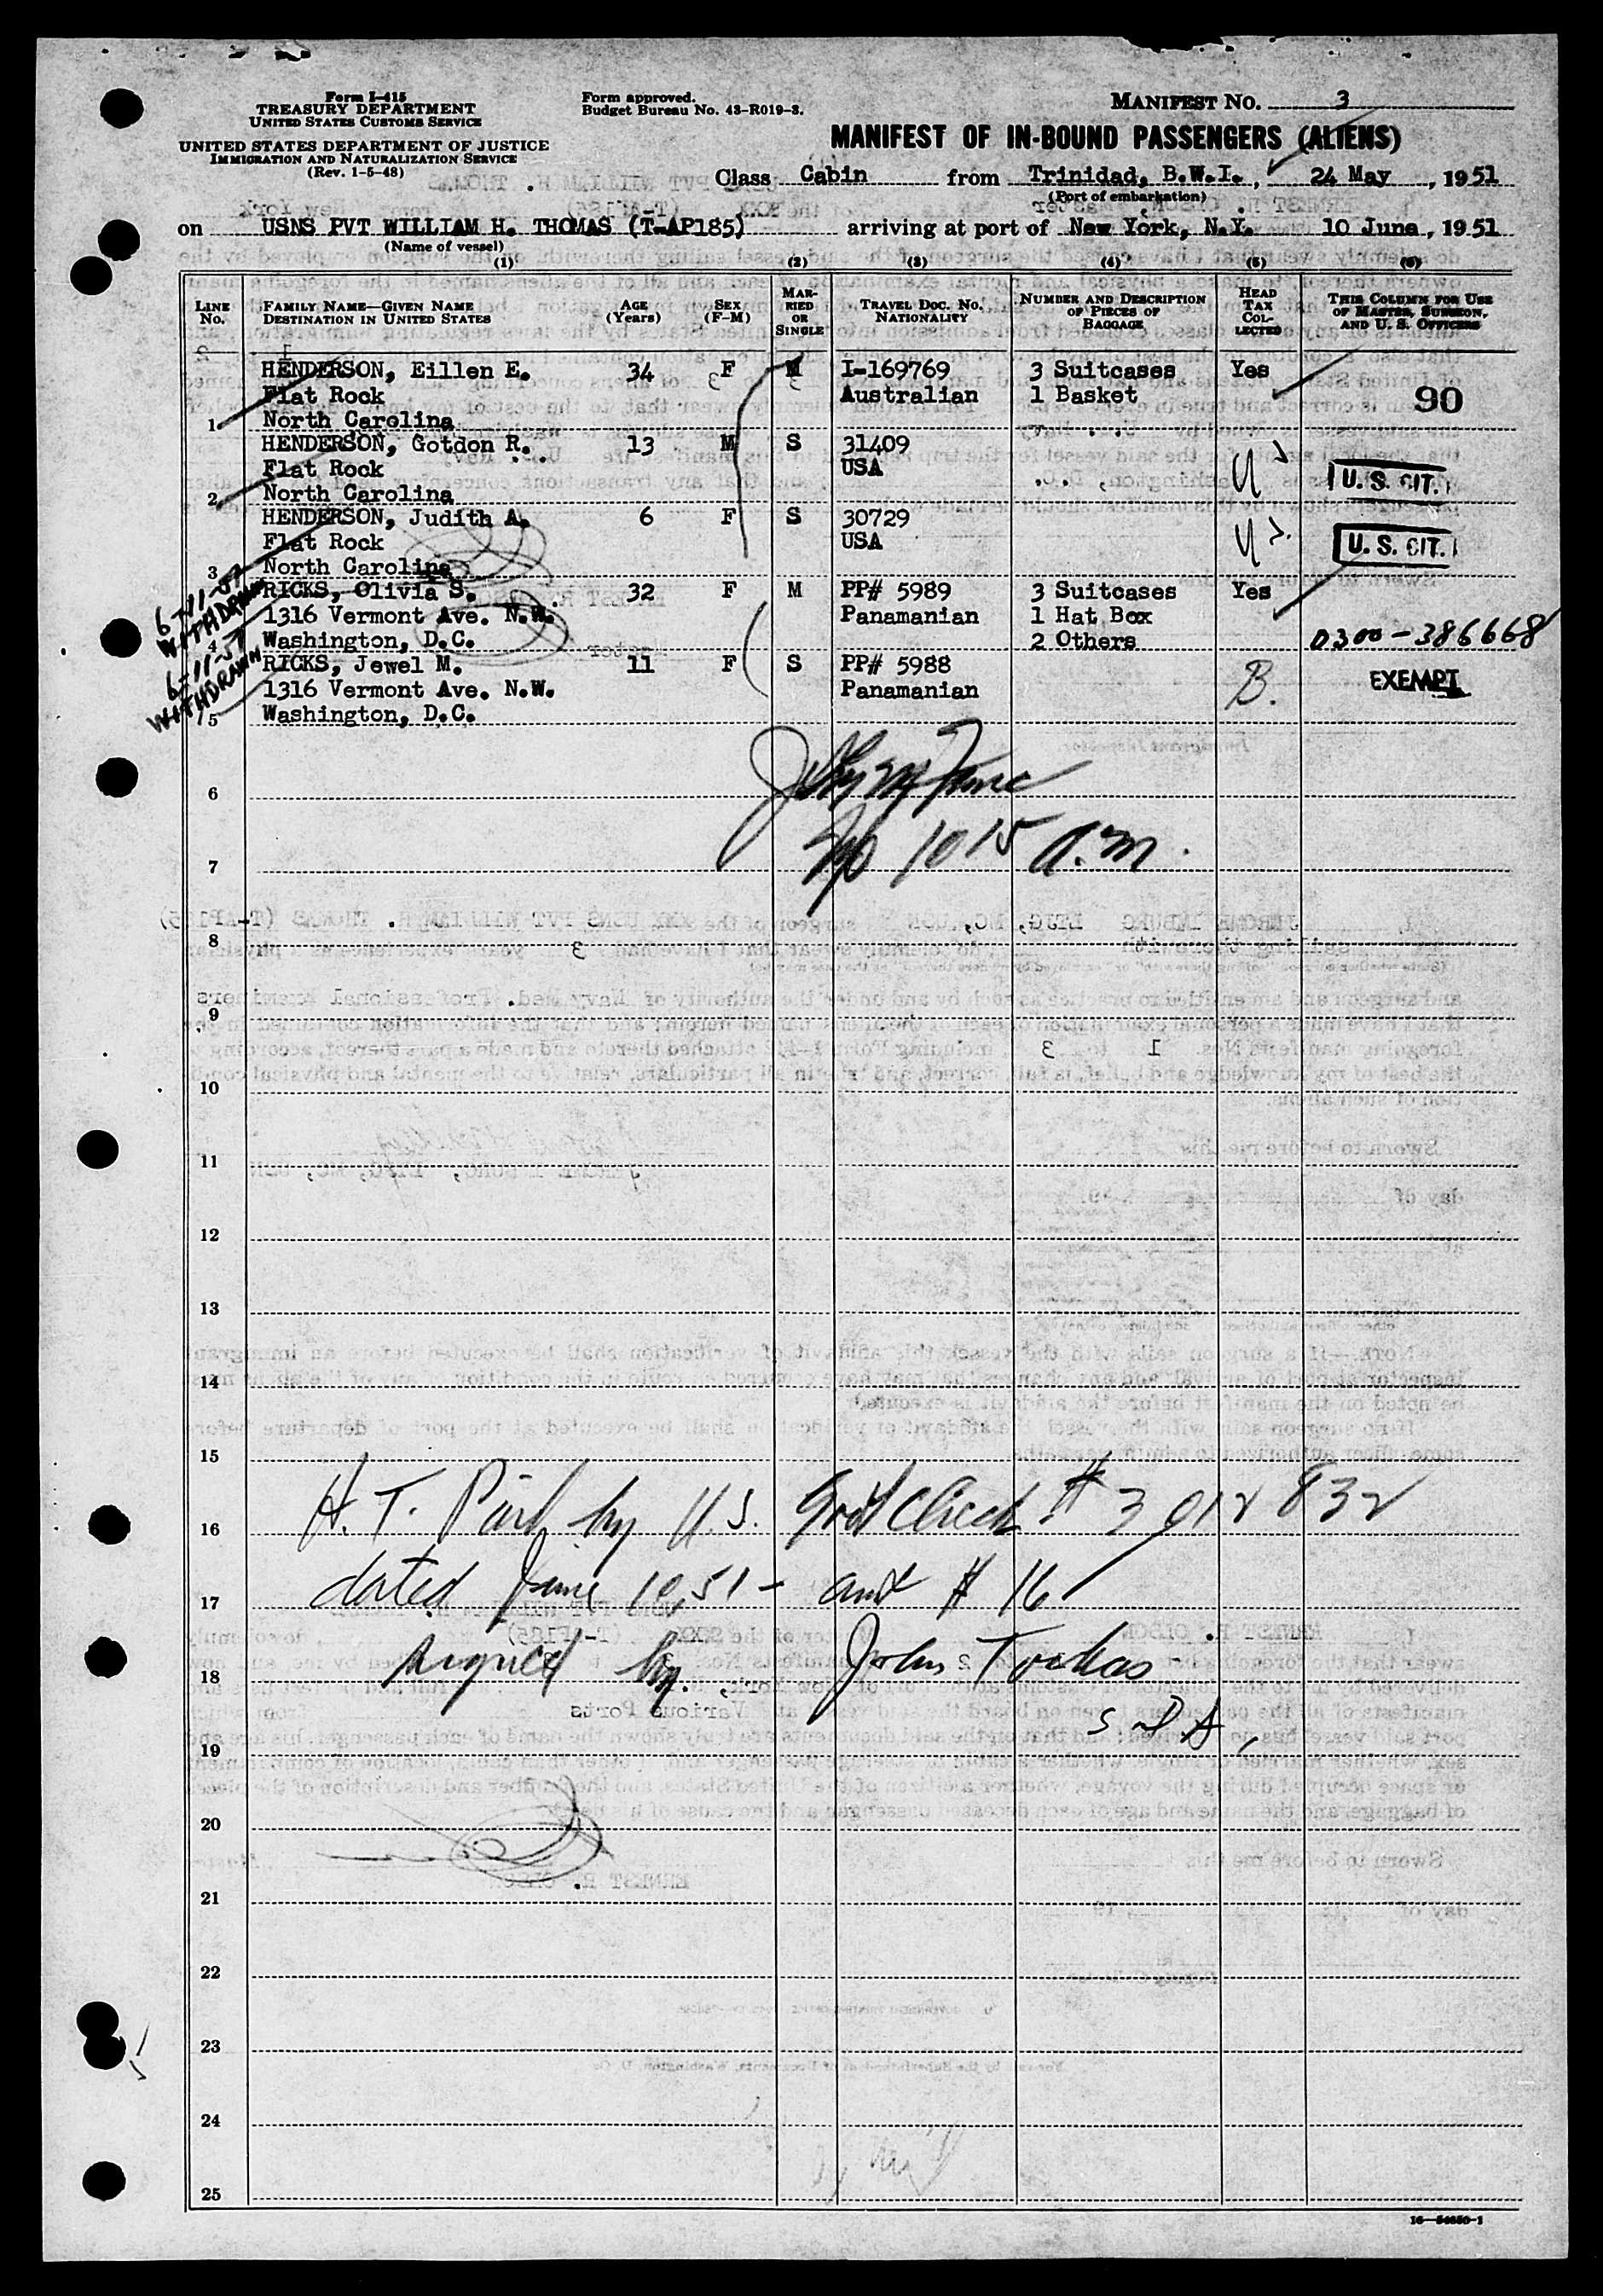 Form I-415
TREASURY DEPARTMENT
UNITED STATES CUSTOMS SERVICE
UNITED STATES DEPARTMENT OF JUSTICE
IMMIGRATION AND NATURALIZATION SERVICE
(Rev. 1-5-48)
Form approved.
Budget Bureau No. 43-R019-3.
MANIFEST NO. 3
MANIFEST OF IN-BOUND PASSENGERS (ALIENS)
Class Cabin from Trinidad, B.W.I., 24 May, 1951
(Port of embarkation)
on USNS PVT WILLIAM H. THOMAS (T-AP185) arriving at port of New York, N.Y. 10 June, 1951
(Name of vessel)
(1) (2) (3) (4) (5) (6)
LINE No. FAMILY NAME—GIVEN NAME DESTINATION IN UNITED STATES AGE (Years) SEX (F-M) MARRIED OR SINGLE TRAVEL DOC. NO. NATIONALITY NUMBER AND DESCRIPTION OF PIECES OF BAGGAGE HEAD TAX COLLECTED THIS COLUMN FOR USE OF MASTER, SURGEON, AND U. S. OFFICERS
HENDERSON, Eillen E. 34 F M I-169769 3 Suitcases Yes
Flat Rock Australian 1 Basket 90
1 North Carolina
HENDERSON, Gotdon R. 13 M S 31409
Flat Rock USA U.S. CIT.
2 North Carolina
HENDERSON, Judith A. 6 F S 30729
Flat Rock USA U.S. CIT.
3 North Carolina
6-11-51 WITHDRAWN
RICKS, Olivia S. 32 F M PP# 5989 3 Suitcases Yes
1316 Vermont Ave. N.W. Panamanian 1 Hat Box
4 Washington, D.C. 2 Others 0300-386668
6-11-51 WITHDRAWN
RICKS, Jewel M. 11 F S PP# 5988 B. EXEMPT
1316 Vermont Ave. N.W. Panamanian
5 Washington, D.C.
6
7 1015 A.M.
8
9
10
11
12
13
14
15
16 H. T. Paid by U.S. Govt Check # 3012832
17 dated June 10, 51 - amt $ 16
18 signed by John Tookas
19
20
21
22
23
24
25
16—54850-1